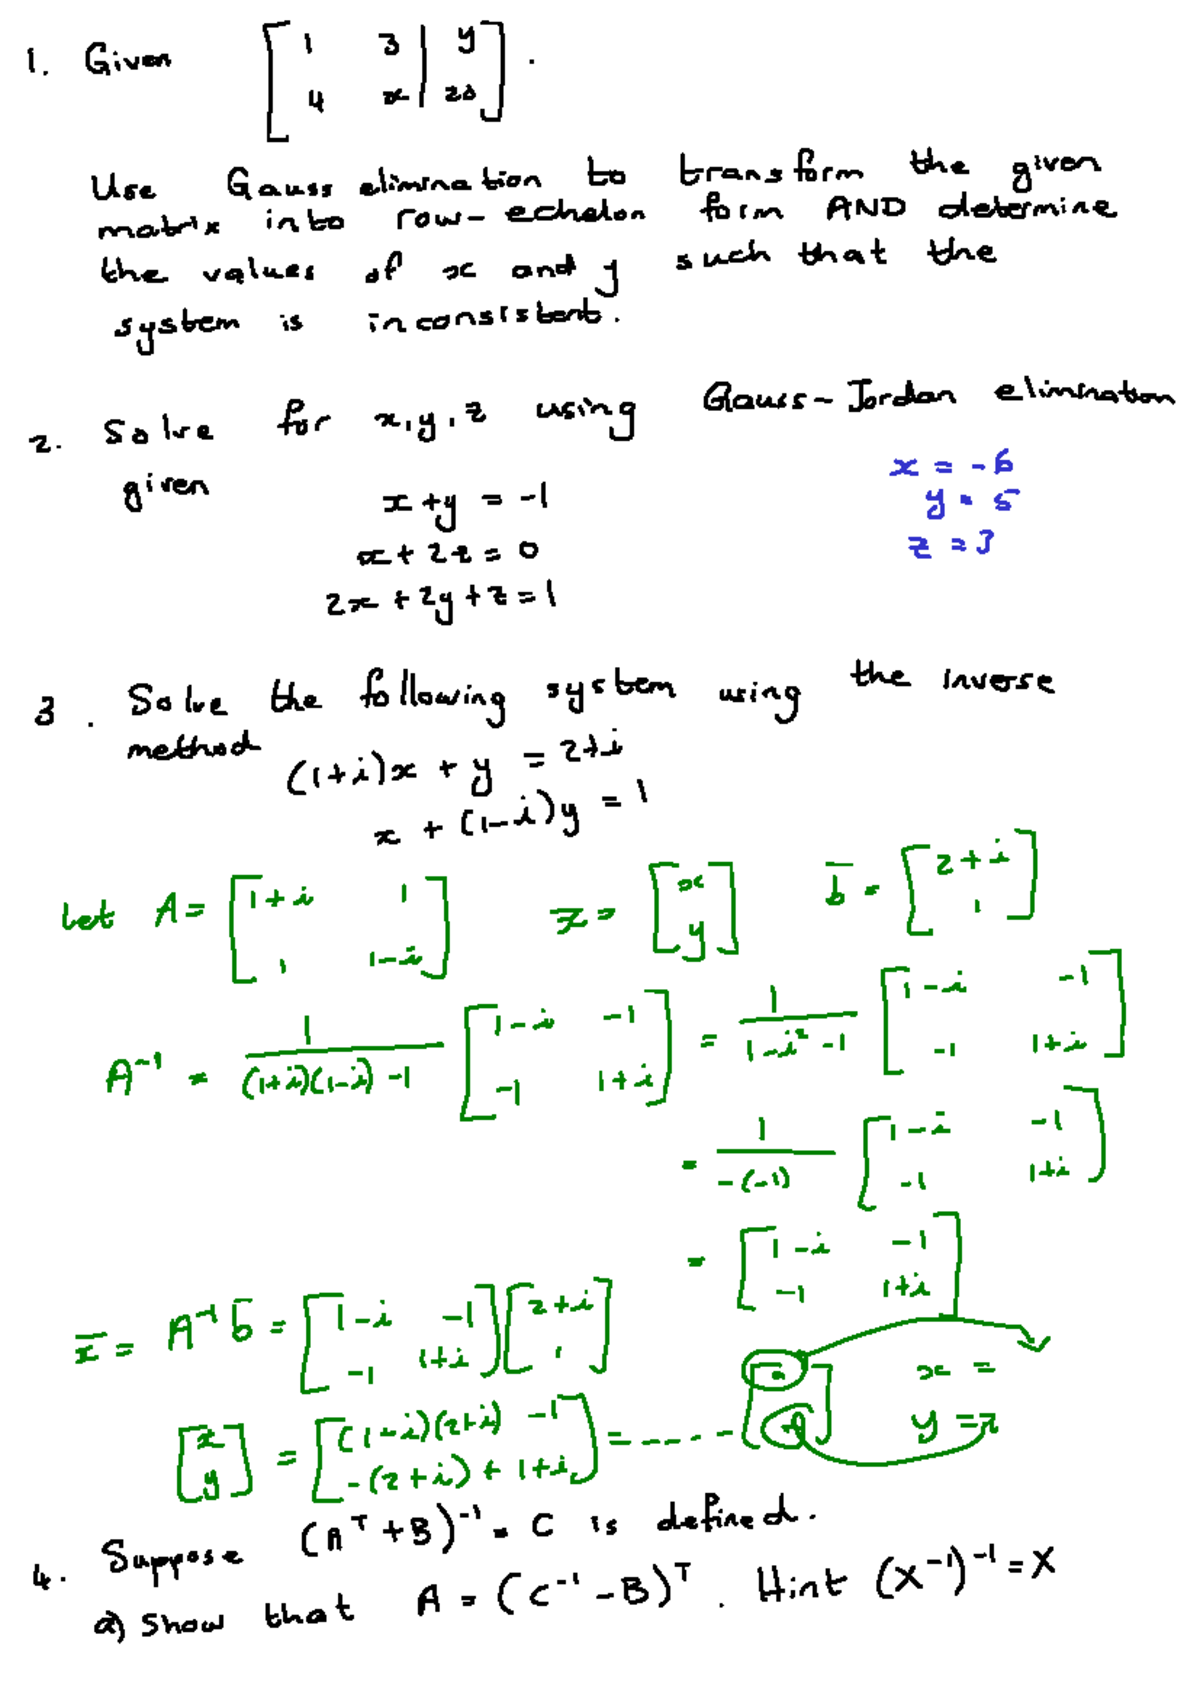 1. Given [ 1 3 | y
4 x | 20 ] .
Use Gauss elimination to transform the given
matrix into row-echelon form AND determine
the values of x and y such that the
system is inconsistent.
2. Solve for x, y, z using Gauss-Jordan elimination
given
x + y = -1
x + 2z = 0
2x + 2y + z = 1
x = -6
y = 5
z = 3
3. Solve the following system using the inverse
method
(1+i)x + y = 2+i
x + (1-i)y = 1
Let A = [ 1+i 1
1 1-i ] x = [ x
y ] b̄ = [ 2+i
1 ]
A⁻¹ = 1/((1+i)(1-i) -1) [ 1-i -1
-1 1+i ] = 1/(1-i²-1) [ 1-i -1
-1 1+i ]
= 1/(-(-1)) [ 1-i -1
-1 1+i ]
= [ 1-i -1
-1 1+i ]
x̄ = A⁻¹ b̄ = [ 1-i -1
-1 1+i ] [ 2+i
1 ]
[ x
y ] = [ (1-i)(2+i) -1
-(2+i) + 1+i ] = ..... [ ] x =
y =
4. Suppose (Aᵀ + B)⁻¹ = C is defined.
a) Show that A = (C⁻¹ - B)ᵀ. Hint (X⁻¹)⁻¹ = X